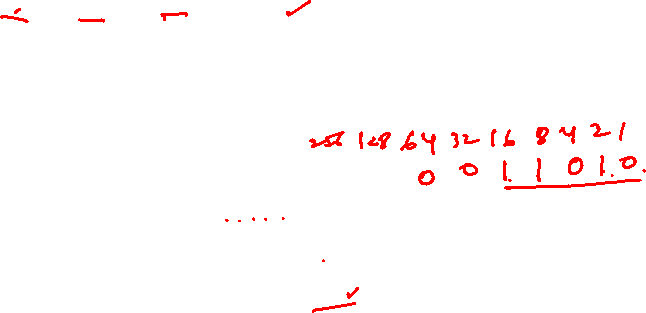 256 128 64 32 16 8 4 2 1
0 0 1 1 0 1 0